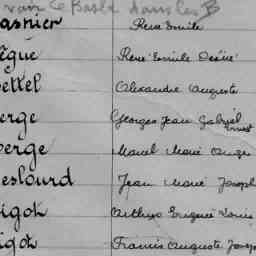 voir Le Bas dans les B
asnier René Emile
ègue René Emile Désiré
ettel Alexandre Auguste
erge Georges Jean Gabriel Ernest
erge Marcel Marie Ange
eslourd Jean Marie Joseph
igot Arthur Eugène Louis
igot Francis Auguste Joseph